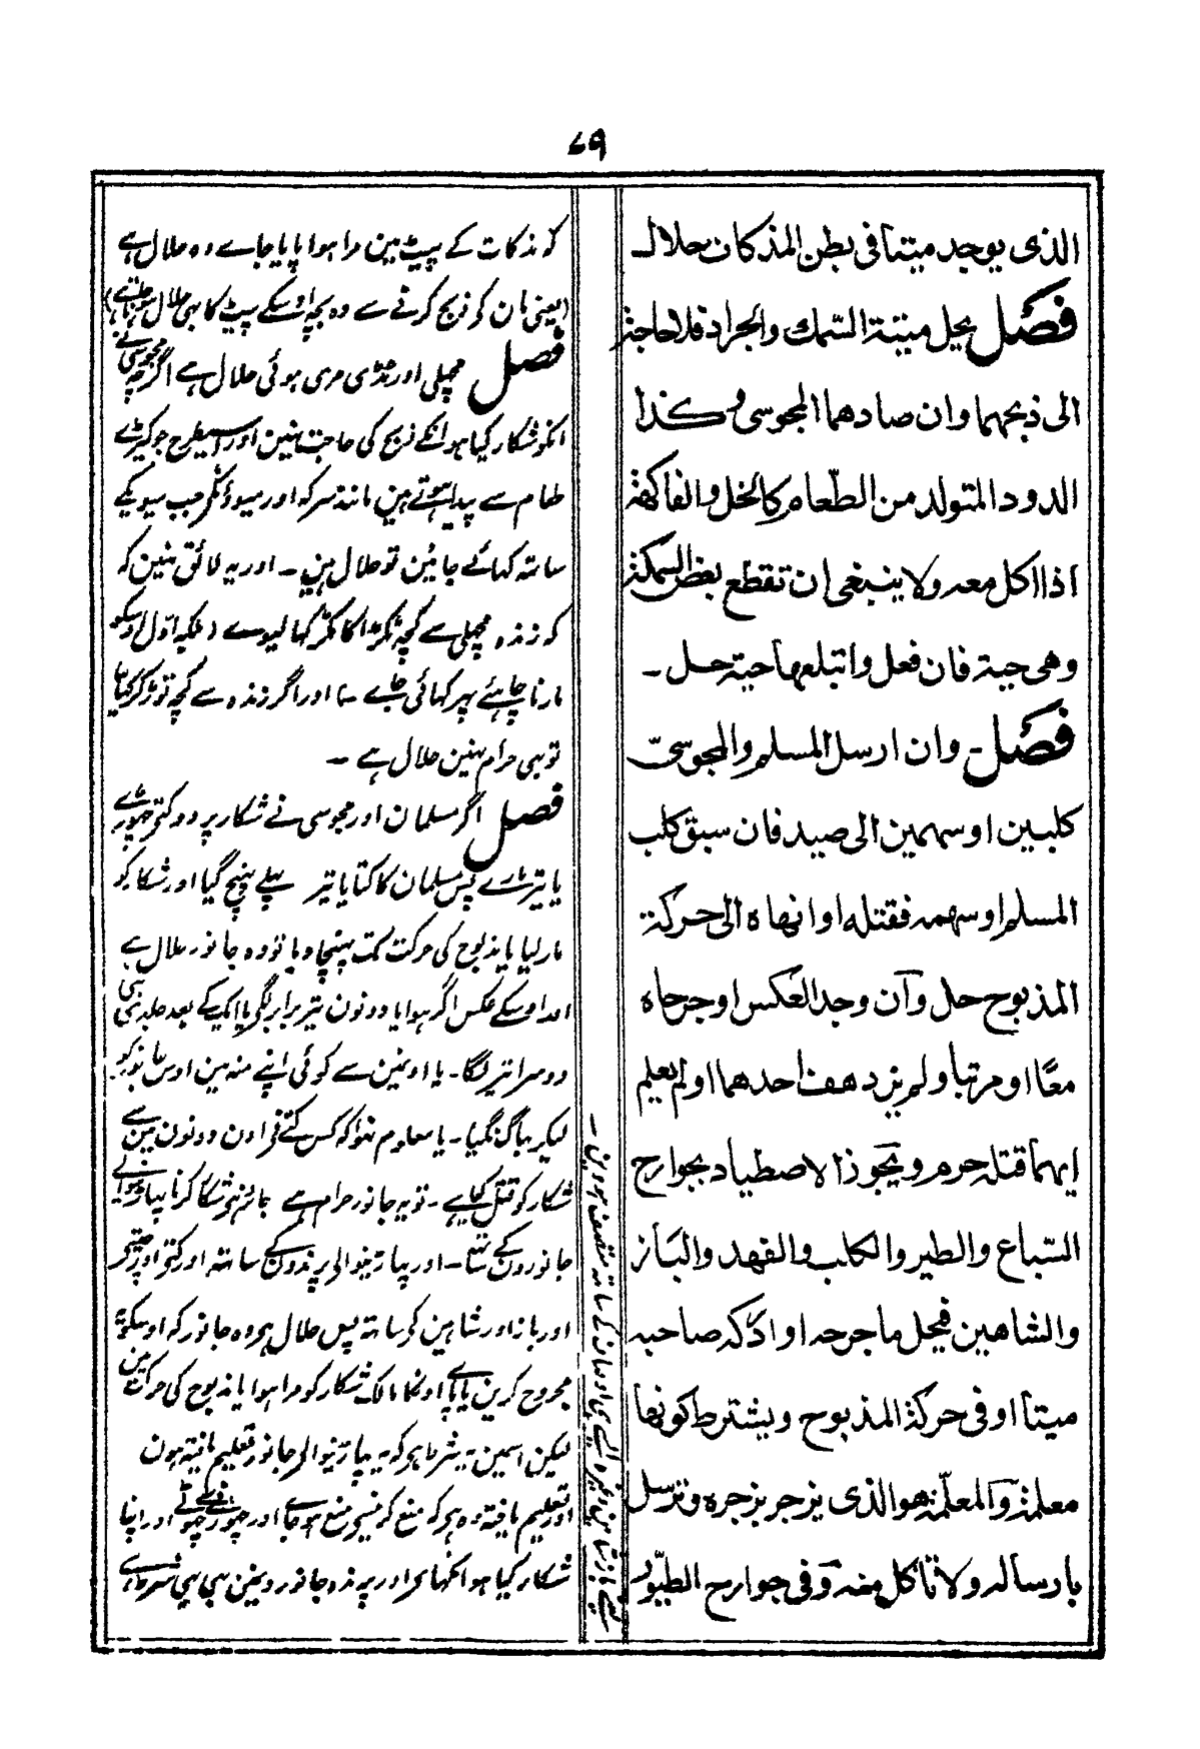 ۷۹
الذی یوجد میتا فی بطن المذکاة حلال
فصل یحل میتة السمك والجراد فلا حاجة
الی ذبحهما وان صادهما المجوسی وکذا
الدود المتولد من الطعام کالخل والفاکهة
اذا اکل معه ولا ینبغی ان تقطع بعض السمکة
وهی حیة فان فعل وابتلعها حیة حل ۔
فصل ۔ وان ارسل المسلم والمجوسی
کلبین او سهمین الی صید فان سبق کلب
المسلم او سهمه فقتله او انهاه الی حرکة
المذبوح حل وآن وجد العکس او جرحاه
معًا او مرتبا ولم یزد هف احدهما او لم یعلم
ایهما قتله حرم ویجوز الاصطیاد بجوارح
السّباع والطیر والکلب والفهد والباز
والشاهین فیحل ما جرحه او ادرکه صاحبه
میتا او فی حرکة المذبوح ویشترط کونها
معلمة والمعلّمة هو الذی ینزجر بزجره وترسل
بارساله ولا تاکل منه وفی جوارح الطیور
کو ذکات کے پیٹ مین مرا ہوا پایا جاے وہ حلال ہے
(یعنی مان کو ذبح کرنے سے وہ بچہ اوسکے پیٹ کا بہی حلال ہوجاتا ہے)
فصل مچہلی اور ٹڈی مری ہوئی حلال ہے اگرچہ مجوسی نے
انکو شکار کیا ہو انکے ذبح کی حاجت نہین اور اسیطرح جو کیڑے
طعام سے پیدا ہوتے ہین مانند سرکہ اور میوؤنکے جب میویکے
ساتہ کہائے جائین تو حلال ہین ۔ اور یہ لائق نہین کہ
کہ زندہ مچہلی سے کچہ ٹکڑا کاٹکر کہا لیوے (بلکہ اوّل اوسکو
مارنا چاہئے پہر کہائی جاے) اور اگر زندہ سے کچہ توڑ کر کہایا
تو بہی حرام نہین حلال ہے ۔
فصل اگر مسلمان اور مجوسی نے شکار پر دو کتے چہوڑے
یا تیر مارے پس مسلمان کا کتا یا تیر پہلے پہنچ گیا اور شکار کو
مار لیا یا مذبوح کی حرکت تک پہنچا دیا تو وہ جانور حلال ہے
اور اوسکے عکس اگر ہوا یا دونون تیر برابر لگے یا ایک کے بعد جلدی ہی
دوسرا تیر لگا ۔ یا اونمین سے کوئی اپنے منہ مین اوس جانور کو
لیکر بہاگ گیا ۔ یا معلوم نہوا کہ کس کتے نے اون دونون مین سے
شکار کو قتل کیا ہے ۔ تو یہ جانور حرام ہے جائز ہے شکار کرنا پہاڑنیوالے
جانورون کے ساتہ ۔ اور پہاڑنیوالی پرندون کے ساتہ اور کتے اور چیتے
اور باز اور شاہین کے ساتہ پس حلال ہے وہ جانور کہ اوسکو یہ
مجروح کرین یا پاے اونکا مالک شکار کو مرا ہوا یا مذبوح کی حرکت مین
لیکن اسمین یہ شرط ہے کہ یہ پہاڑنیوالے جانور تعلیم یافتہ ہون
اور تعلیم یافتہ وہ ہے کہ منع کرنیسے منع ہوجاے اور چہوڑنے سے چہوٹے اور اپنا
شکار کیا ہوا نکہاے اور پرندہ جانورونمین بہی یہی شرط ہے